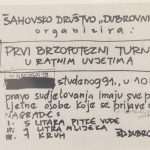 ŠAHOVSKO DRUŠTVO „DUBROVN
organizira:
PRVI BRZOPOTEZNI TURN
U RATNIM UVJETIMA
studenog 91., u 10
pravo sudjelovanja imaju sve p
ljetne osobe koje se prijave d
NAGRADE:
1. 5 LITARA PITKE VODE
2. 1 LITRA MLIJEKA
3. 1 KRUH
ŠD DUBROV